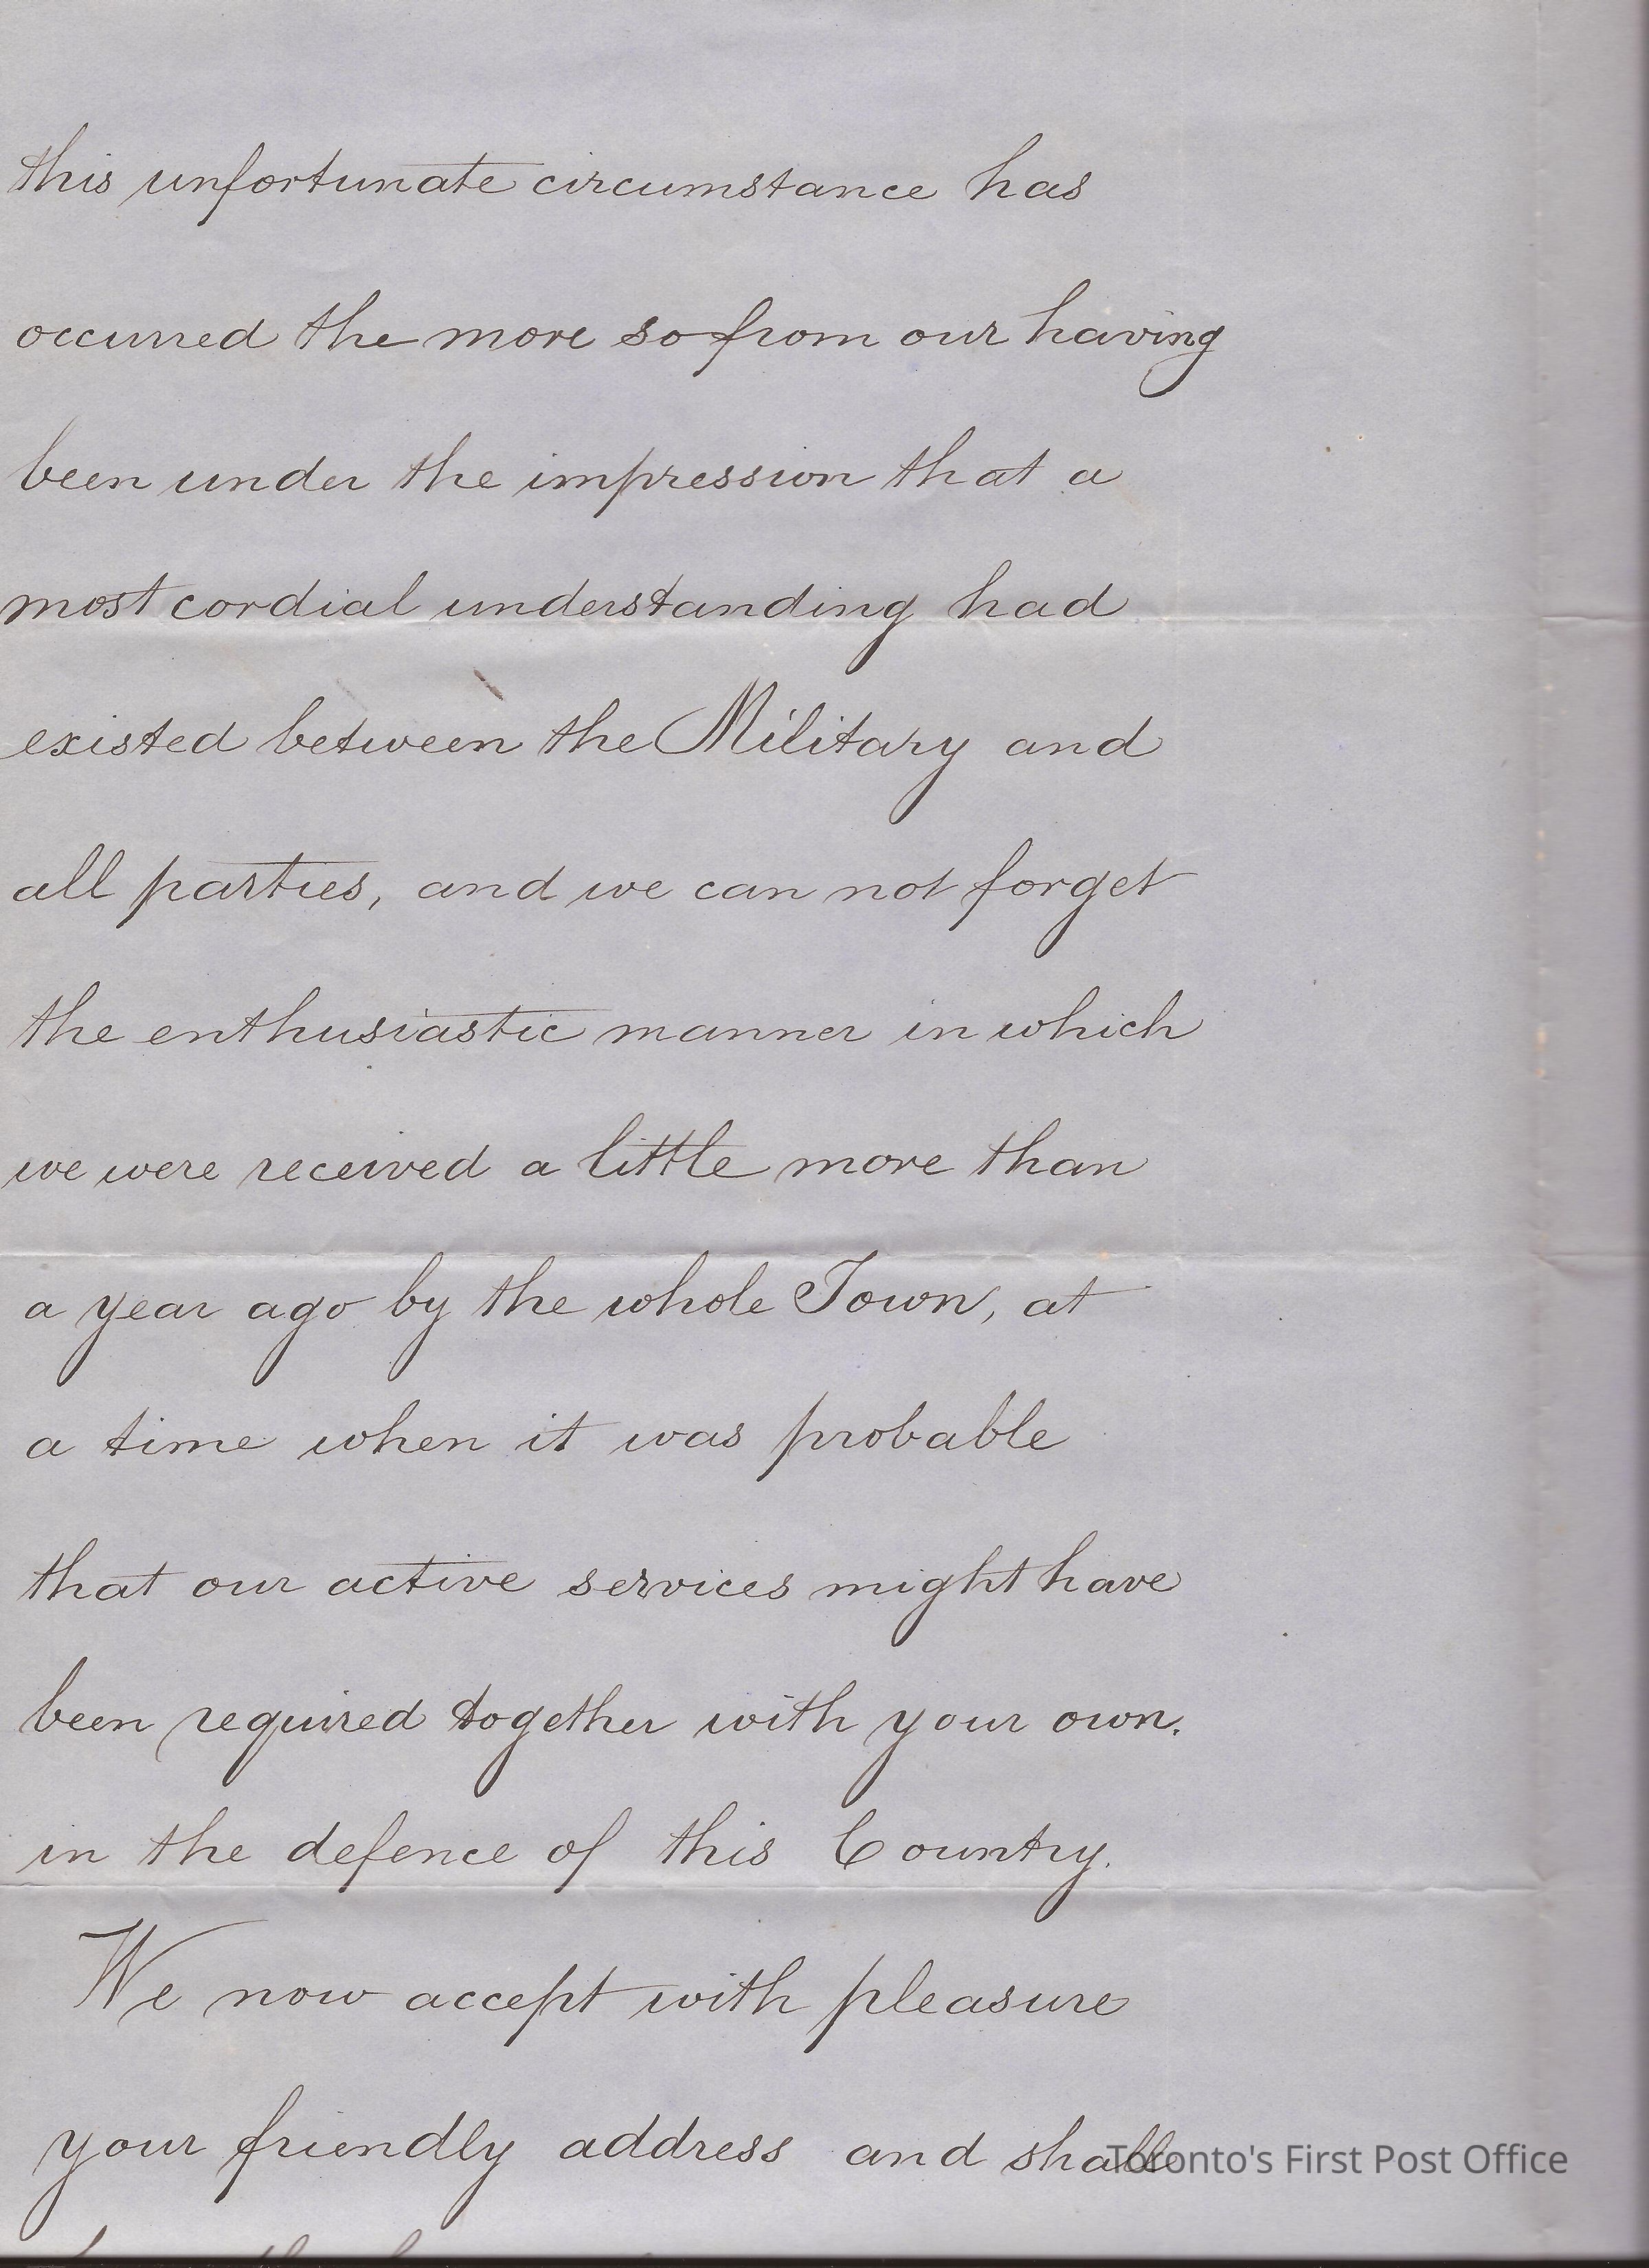 this unfortunate circumstance has
occurred the more so from our having
been under the impression that a
most cordial understanding had
existed between the Military and
all parties, and we can not forget
the enthusiastic manner in which
we were received a little more than
a year ago by the whole Town, at
a time when it was probable
that our active services might have
been required together with your own.
in the defence of this Country.
We now accept with pleasure
your friendly address and shall
Toronto's First Post Office